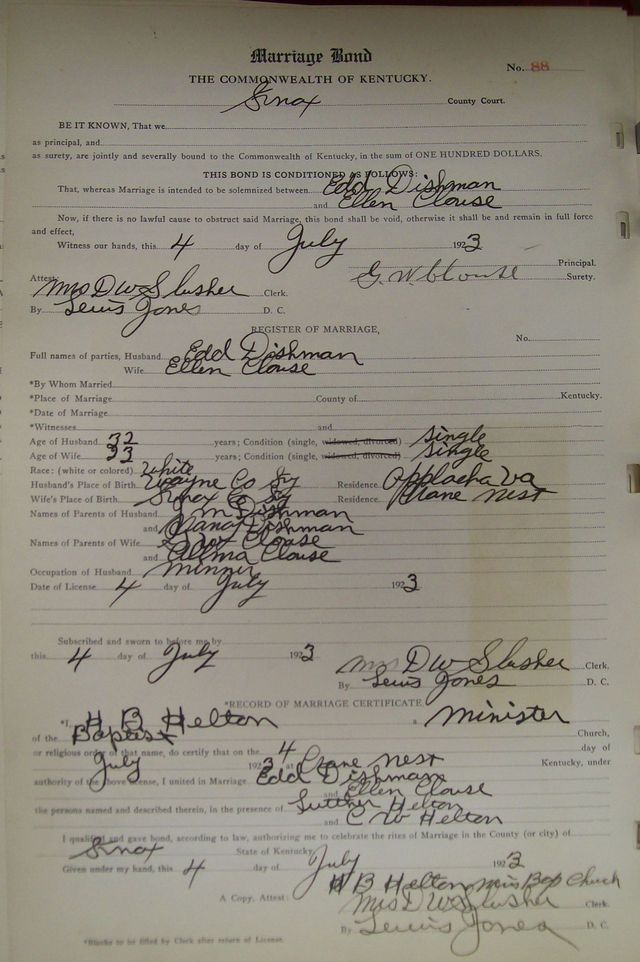 Marriage Bond
No. 88
THE COMMONWEALTH OF KENTUCKY.
Knox County Court.
BE IT KNOWN, That we
as principal, and
as surety, are jointly and severally bound to the Commonwealth of Kentucky, in the sum of ONE HUNDRED DOLLARS.
THIS BOND IS CONDITIONED AS FOLLOWS:
That, whereas Marriage is intended to be solemnized between Edd Dishman
and Ellen Clouse
Now, if there is no lawful cause to obstruct said Marriage, this bond shall be void, otherwise it shall be and remain in full force
and effect,
Witness our hands, this 4 day of July 1923
Principal.
Attest: G. W. Clouse Surety.
Mrs D W Slusher Clerk.
By Lewis Jones D. C.
REGISTER OF MARRIAGE,
No.
Full names of parties, Husband Edd Dishman
Wife Ellen Clouse
*By Whom Married
*Place of Marriage County of Kentucky.
*Date of Marriage
*Witnesses and
Age of Husband 32 years; Condition (single, widowed, divorced) single
Age of Wife 33 years; Condition (single, widowed, divorced) single
Race: (white or colored) White
Husband's Place of Birth Wayne Co Ky Residence Applacha Va
Wife's Place of Birth Knox Co Ky Residence Crane Nest
Names of Parents of Husband J M Dishman
and Nancy Dishman
Names of Parents of Wife Clouse
and Clouse
Occupation of Husband Minner
Date of License 4 day of July 1923
Subscribed and sworn to before me by
this 4 day of July 1923
Mrs D W Slusher Clerk.
By Lewis Jones D. C.
*RECORD OF MARRIAGE CERTIFICATE
*I, H B Helton a Minister
of the Baptist Church,
or religious order of that name, do certify that on the 4 day of
July 1923 at Crane Nest Kentucky, under
authority of the above license, I united in Marriage Edd Dishman
and Ellen Clouse
the persons named and described therein, in the presence of Lutther Helton
and C W Helton
I qualified and gave bond, according to law, authorizing me to celebrate the rites of Marriage in the County (or city) of
Knox State of Kentucky
Given under my hand, this 4 day of July 1923
H B Helton Mis Bap Church
A Copy, Attest: Mrs D W Slusher Clerk.
By Lewis Jones D. C.
*Blanks to be filled by Clerk after return of License.